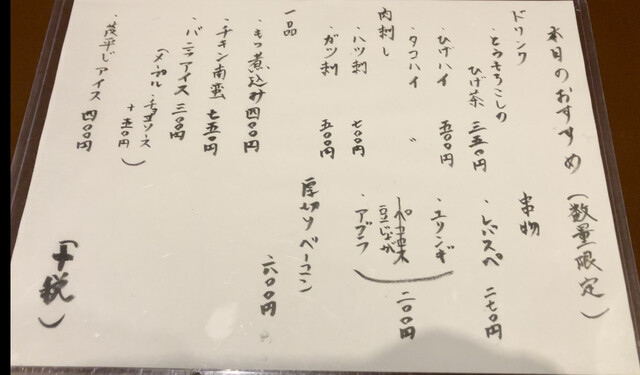 本日のおすすめ（数量限定）
ドリンク
・とうもろこしの
ひげ茶 三五〇円
・ひげハイ 五〇〇円
・タコハイ 〃
肉刺し
・ハツ刺 七〇〇円
・ガツ刺 五〇〇円
一品
・もつ煮込み 四〇〇円
・チキン南蛮 七五〇円
・バニラアイス 三〇〇円
（メープル・チョコソース
＋五〇円）
・茂平じアイス 四〇〇円
串物
・レバスペ 二七〇円
・エリンギ
豆じゃが
・アブラ
二〇〇円
厚切りベーコン
六〇〇円
（＋税）